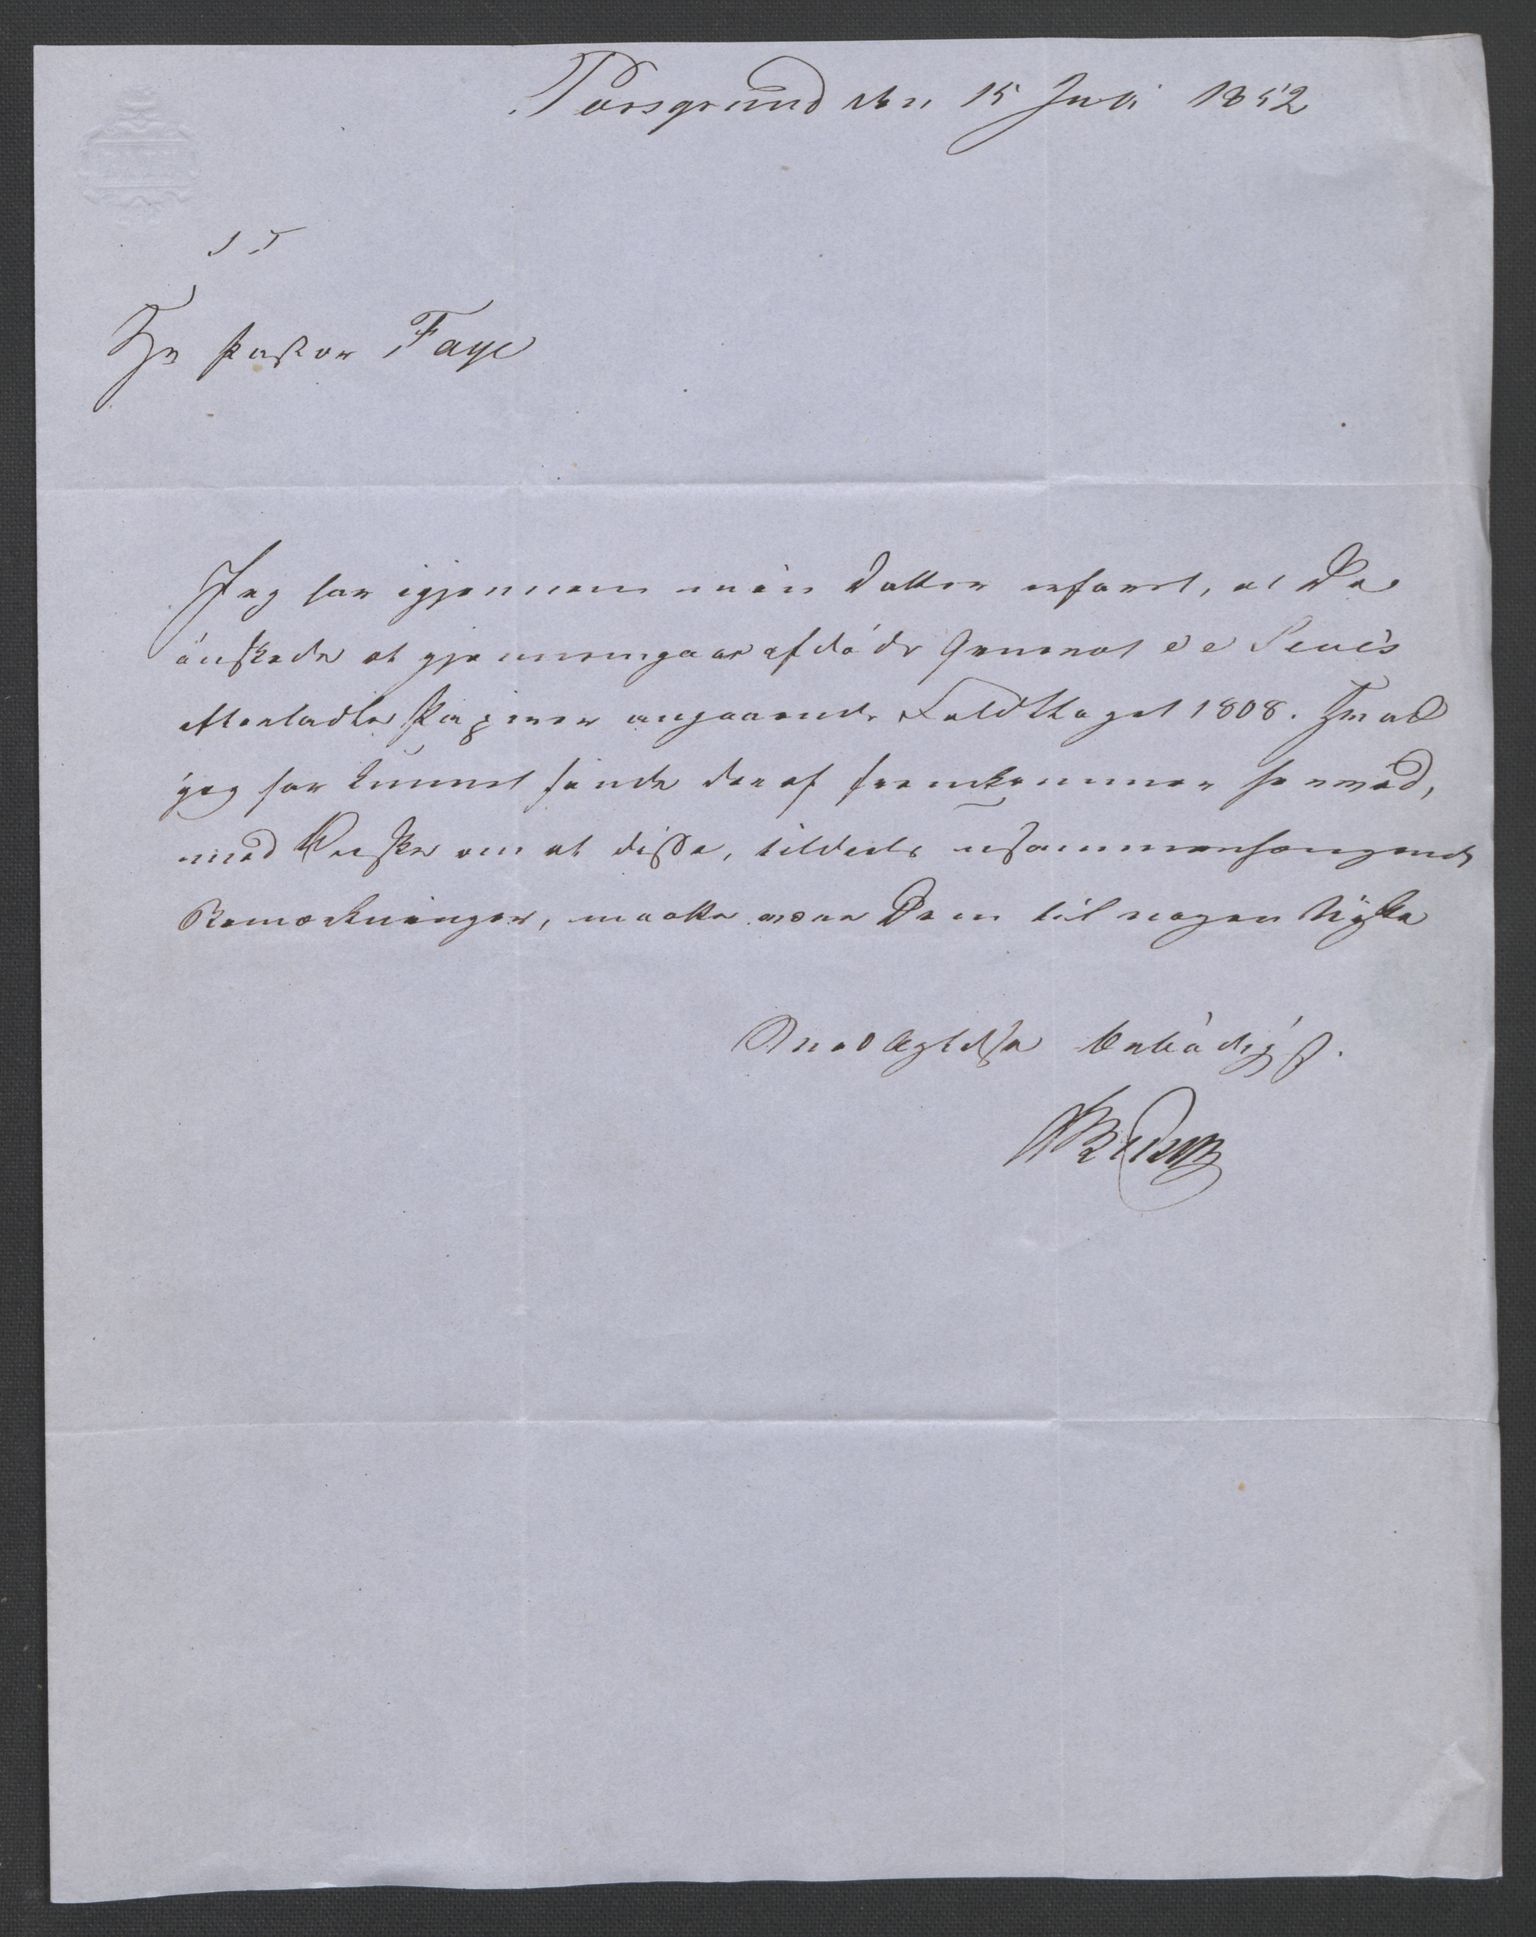 Porsgrund den 15 Juli 1852
S. T.
Hr Pastor Faye
Jeg har igjennem min Datter erfaret, at De
önskede at gjennemgaae afdöde General de Seue's
efterladte Papirer angaaende Feldttoget 1808. Hvad
jeg har kunnet finde deraf fremkommer hermed,
med Önske om at disse, tildeels usammenhængende
Bemærkninger, maatte være Dem til nogen Nytte
Med Agtelse Erbödigst.